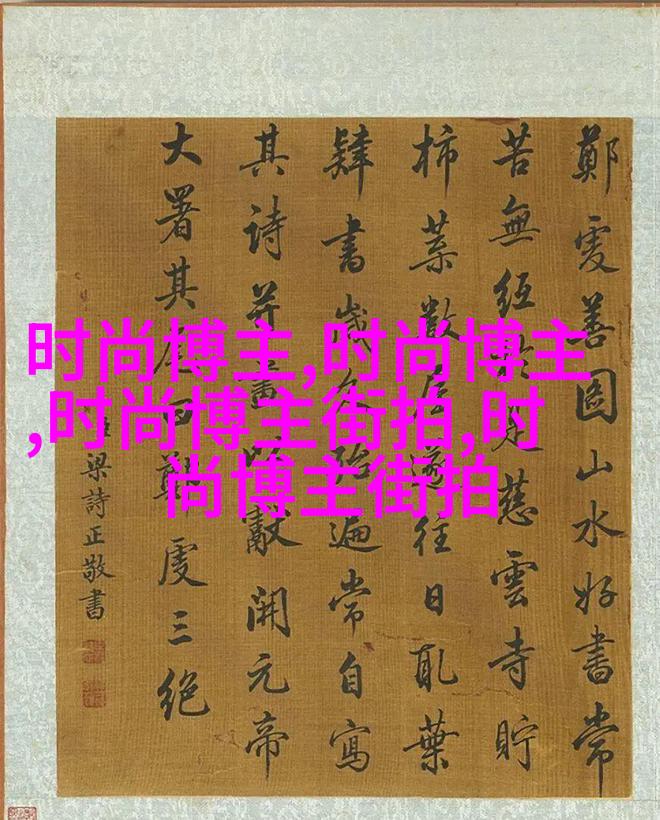 鄭虔善圖山水好書常
苦無紙於是慈雲寺貯
柿葉數屋遂往日取葉
肄書歲久殆遍常自寫
其詩并畫以獻開元帝
大署其尾曰鄭虔三絕
臣梁詩正敬書
时尚博主,时尚博主
,时尚博主街拍,时
尚博主街拍